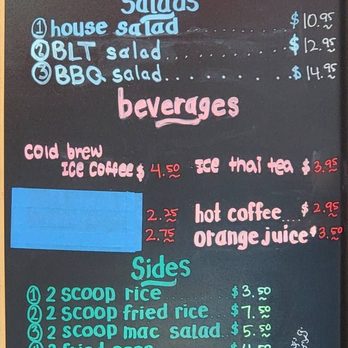 Salads
① house salad ........ $10.95
② BLT salad ........ $12.95
③ BBQ salad ........ $14.95
beverages
cold brew
ICE coffee $ 4.50 ICE thai tea $ 3.95
2.25 hot coffee .... $ 2.95
2.75 orange juice $3.50
Sides
① 2 scoop rice $3.50
② 2 scoop fried rice $7.50
③ 2 scoop mac salad $5.50